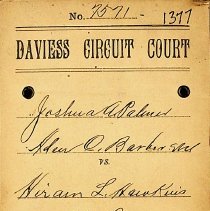 No. 7571 - 1377
DAVIESS CIRCUIT COURT
Joshua A Palmer
D. Barbour
VS.
Hiram L. Hawkins